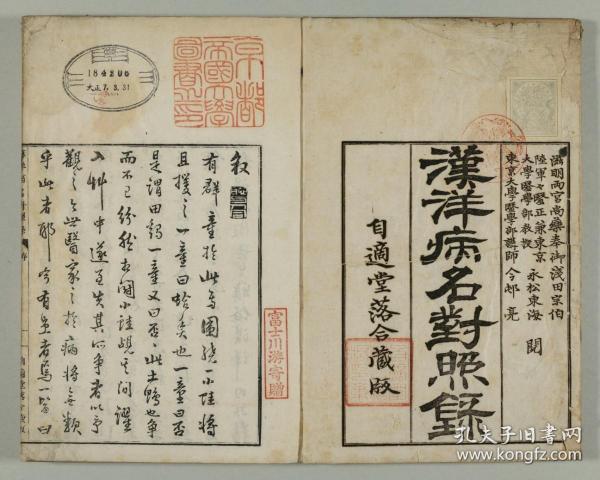 滋明両宮尚藥奉御淺田宗伯
陸軍々醫正兼東京
大學醫學部教授 永松東海 閲
東京大學醫學部講師 今邨亮
漢洋病名對照錄
自適堂落合藏版
京都
帝國大學
圖書之印
184206
大正7.3.31
富士川游寄贈
叙
有群童於此焉圍繞一小陸將
且援之一童曰蛤矣也一童曰否
是謂田鷄一童又曰否此土鴨也爭
而不已紛然
入艸中遂至失其所爭者以予
觀之世醫家之於病將無類
乎此者耶今有患者焉一醫曰
孔夫子旧书网
www.kongfz.com